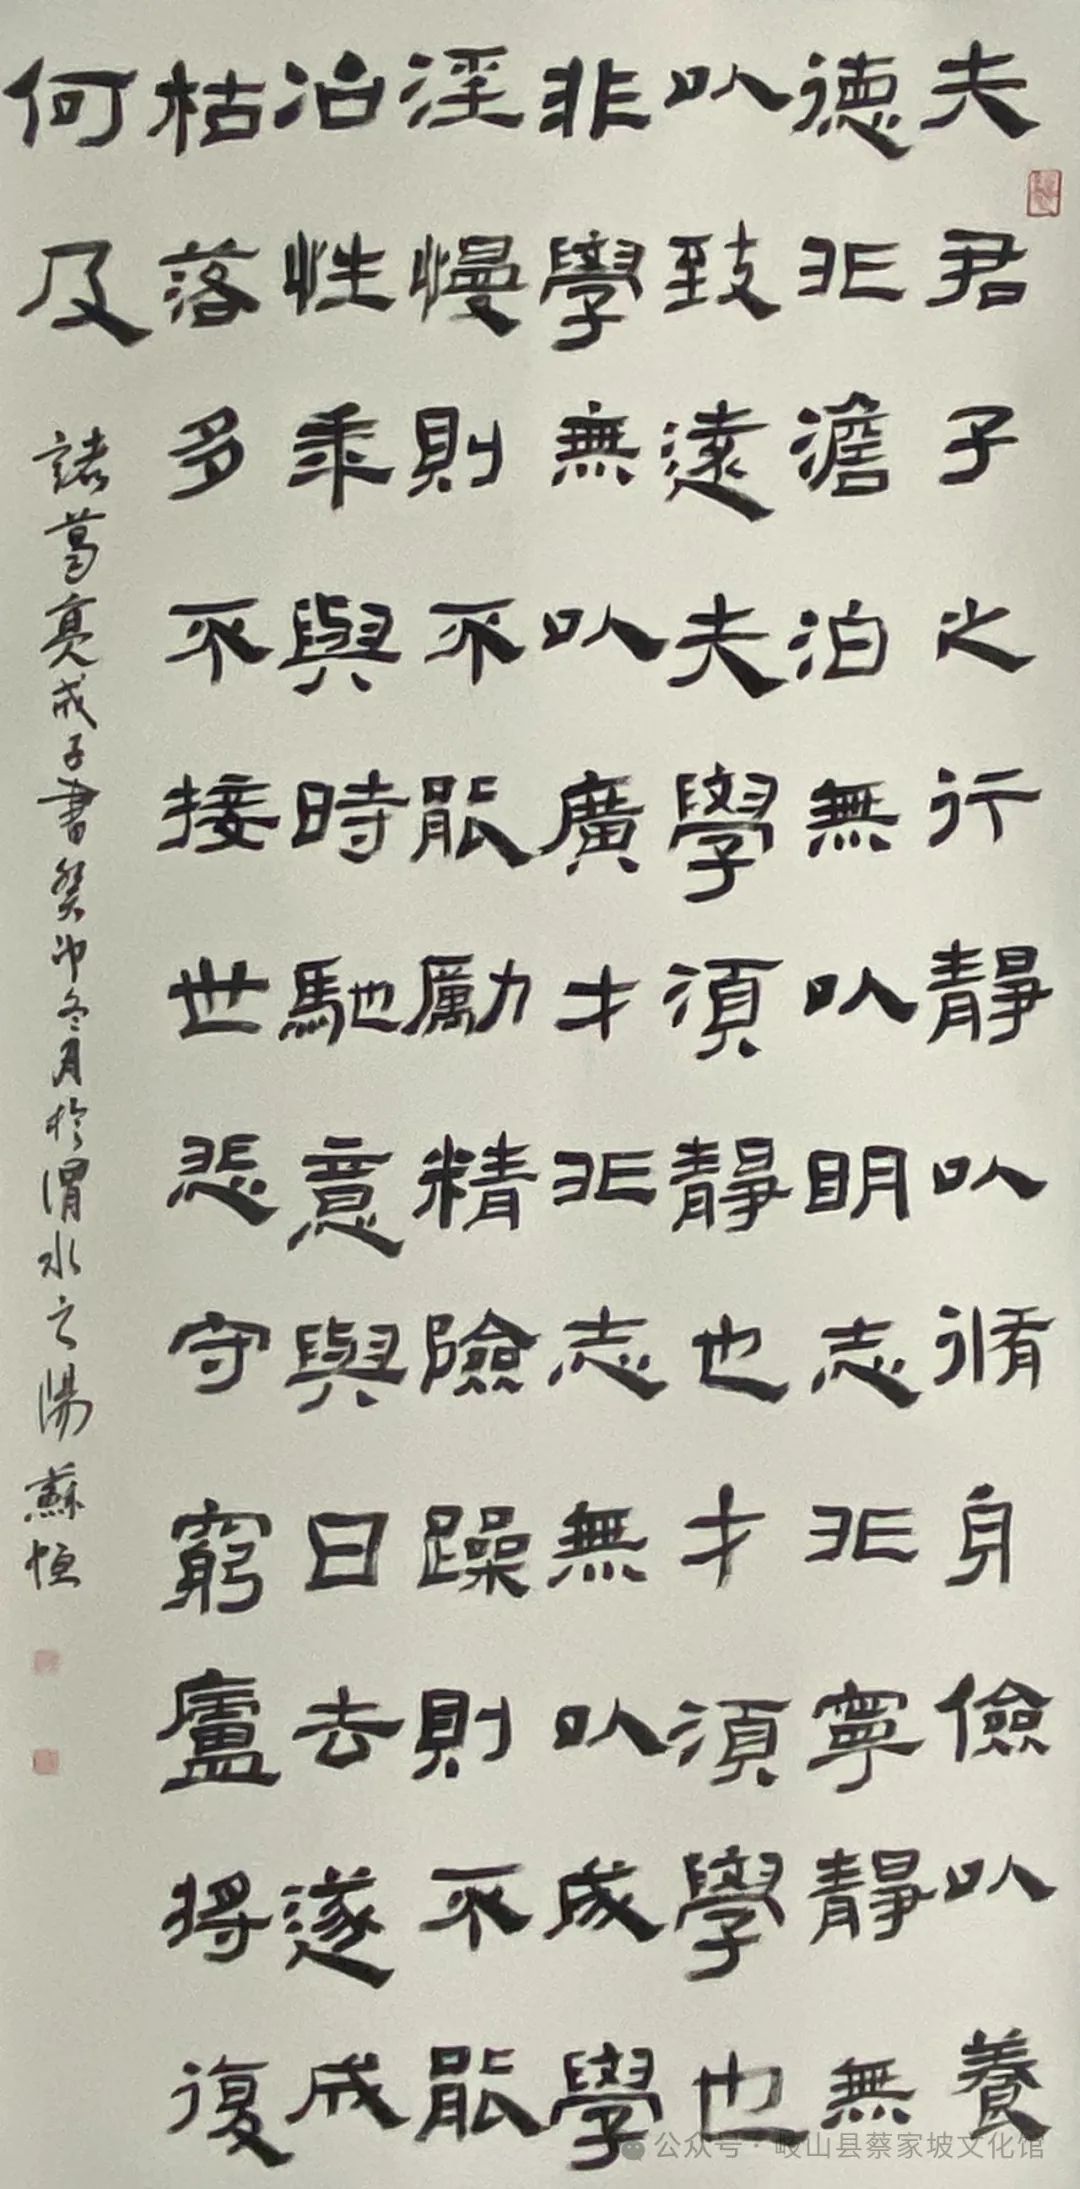 夫君子之行靜以脩身儉以養
德非澹泊無以明志非寧靜無
以致遠夫學須靜也才須學也
非學無以廣才非志無以成學
淫慢則不能勵精險躁則不能
冶性年與時馳意與日去遂成
枯落多不接世悲守窮廬將復
何及
諸葛亮戒子書癸卯冬月於渭水之陽蘇恒
公众号·岐山县蔡家坡文化馆